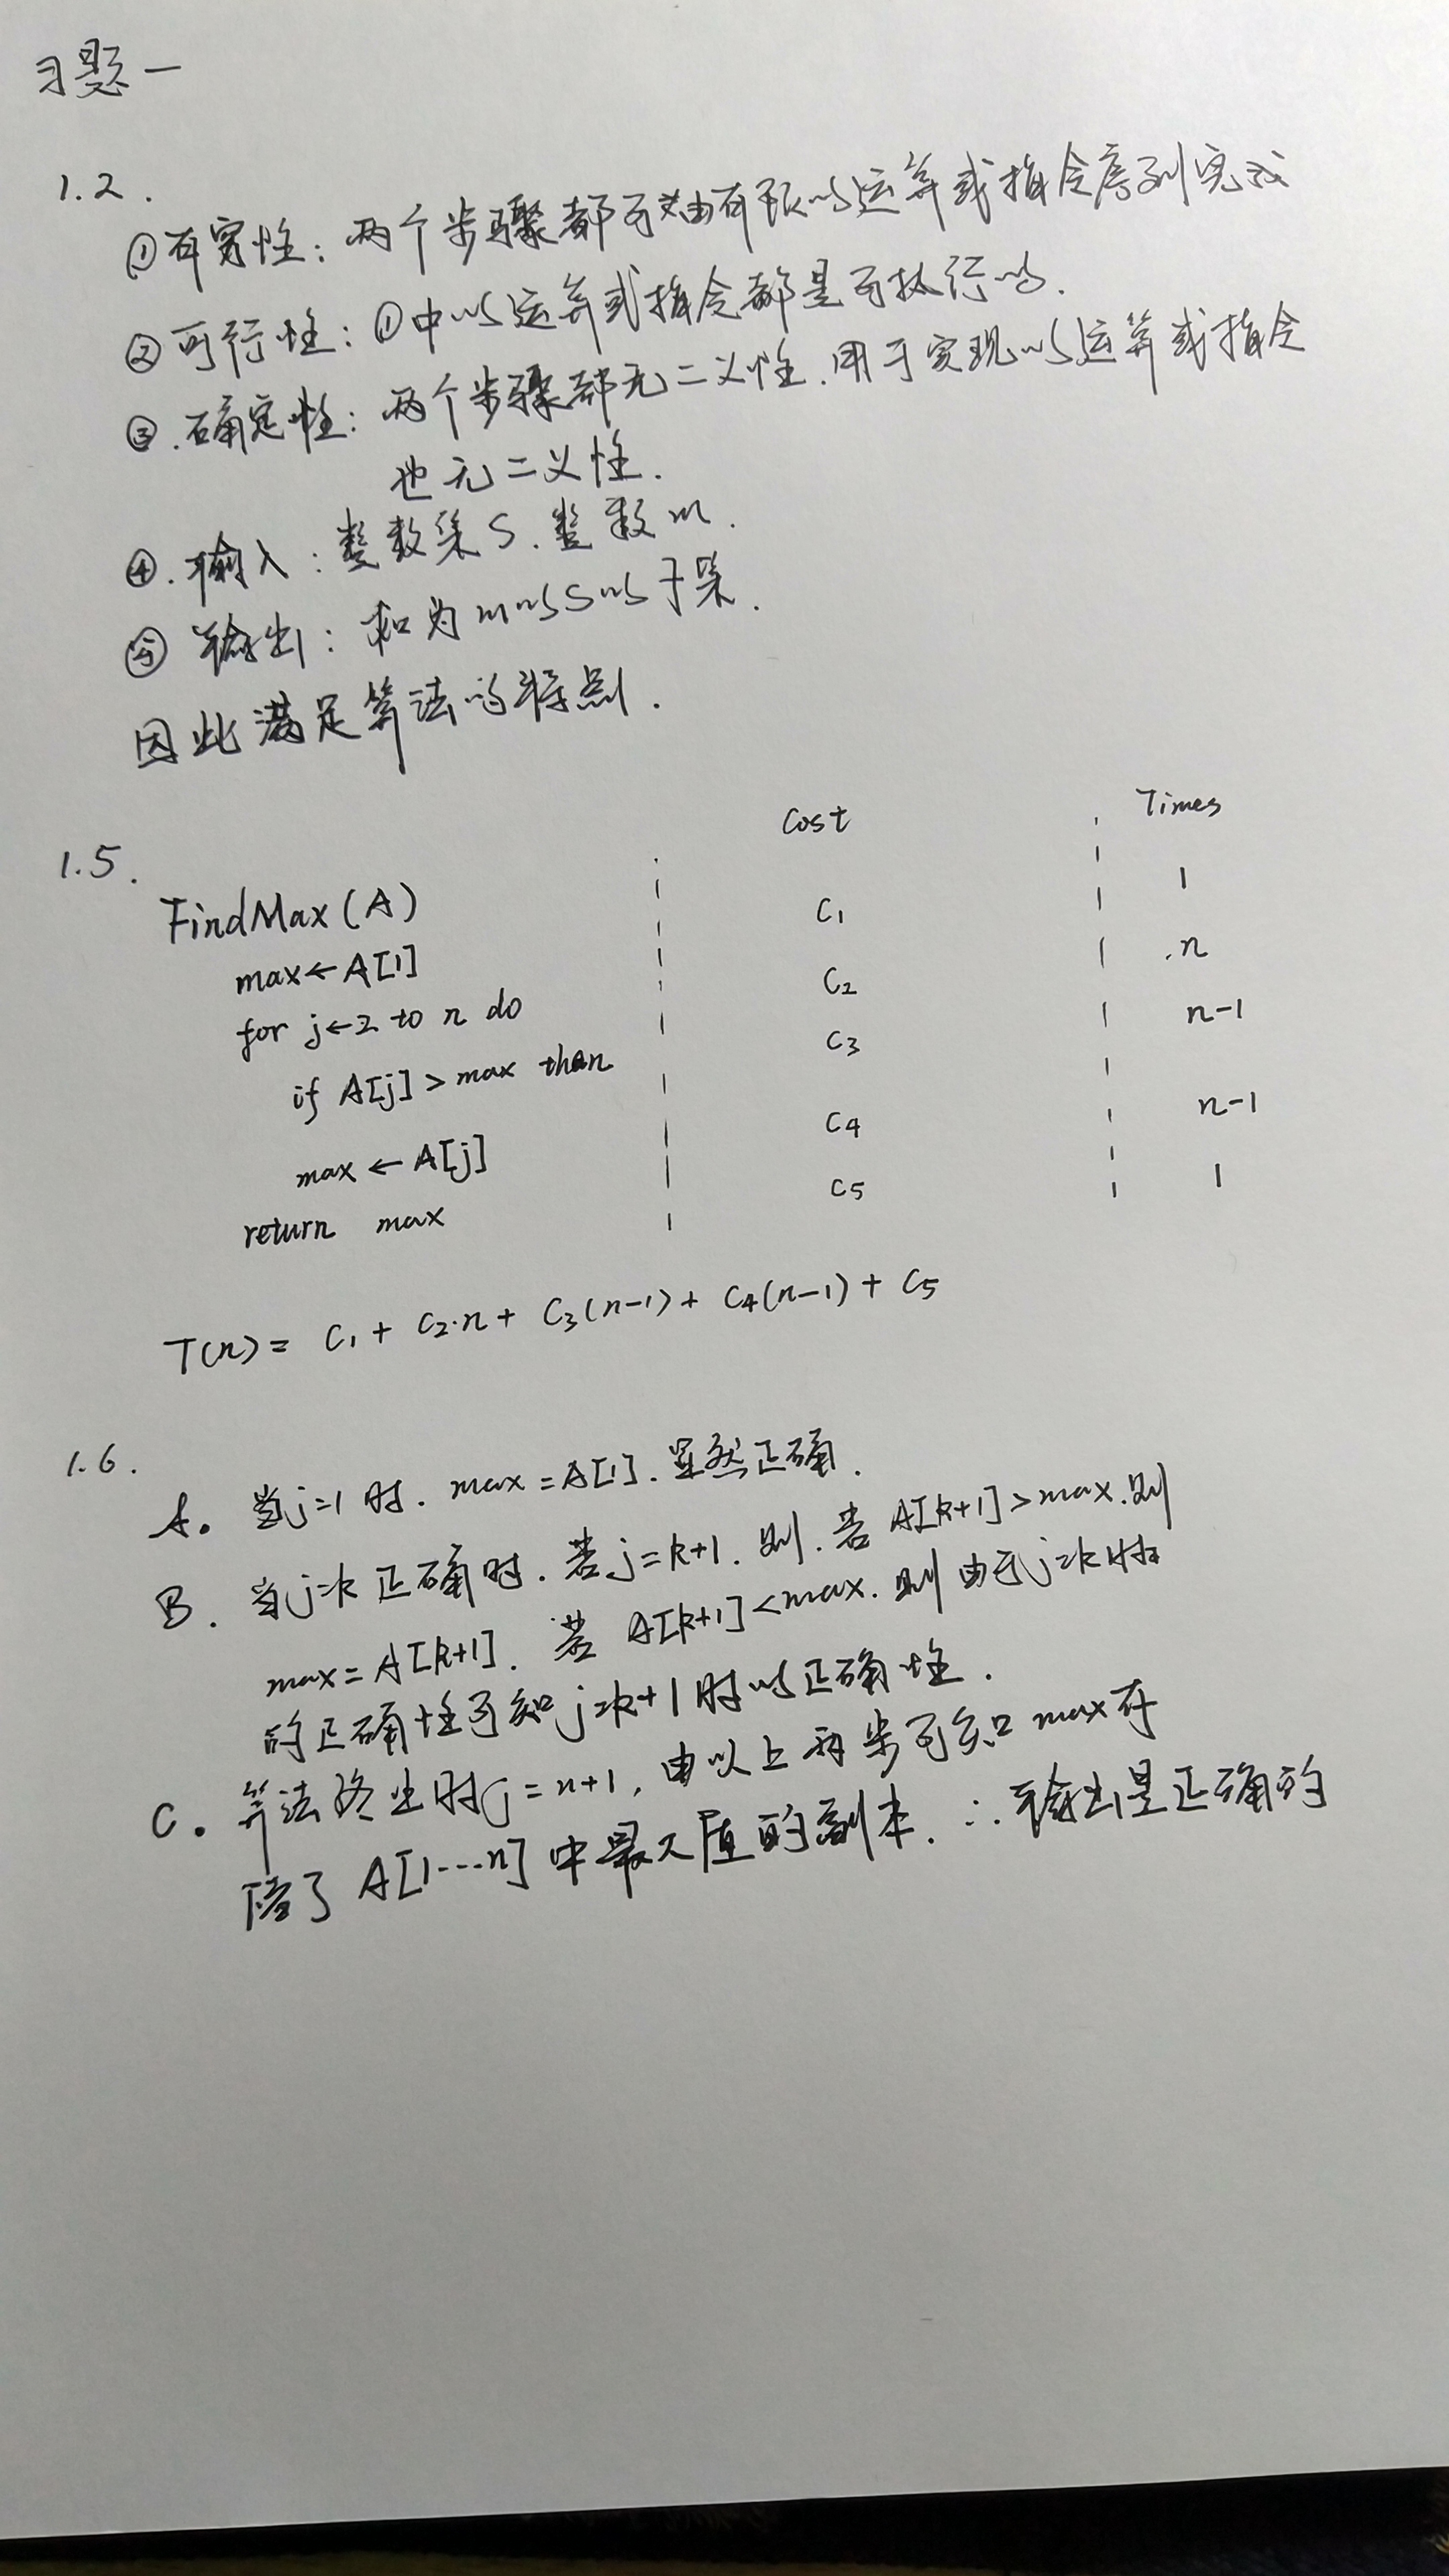 习题一
1.2.
①有穷性：两个步骤都可以由有限的运算或指令序列完成
②可行性：①中的运算或指令都是可执行的.
③.确定性：两个步骤都无二义性.用于实现的运算或指令
也无二义性.
④.输入：整数集S.整数m.
⑤输出：和为m的S的子集.
因此满足算法的特点.
1.5.
Cost Times
FindMax(A)
max←A[1] C1 1
for j←2 to n do C2 n
if A[j]>max then C3 n-1
max←A[j] C4 n-1
return max C5 1
T(n)= C1+ C2·n+ C3(n-1)+ C4(n-1)+ C5
1.6.
A. 当j=1时. max=A[1].显然正确.
B. 当j=k正确时.若j=k+1.则.若A[k+1]>max.则
max=A[k+1].若A[k+1]<max.则由于j=k时
的正确性可知j=k+1时的正确性.
C. 算法终止时j=n+1,由以上两步可知max存
储了A[1…n]中最大值的副本.∴输出是正确的